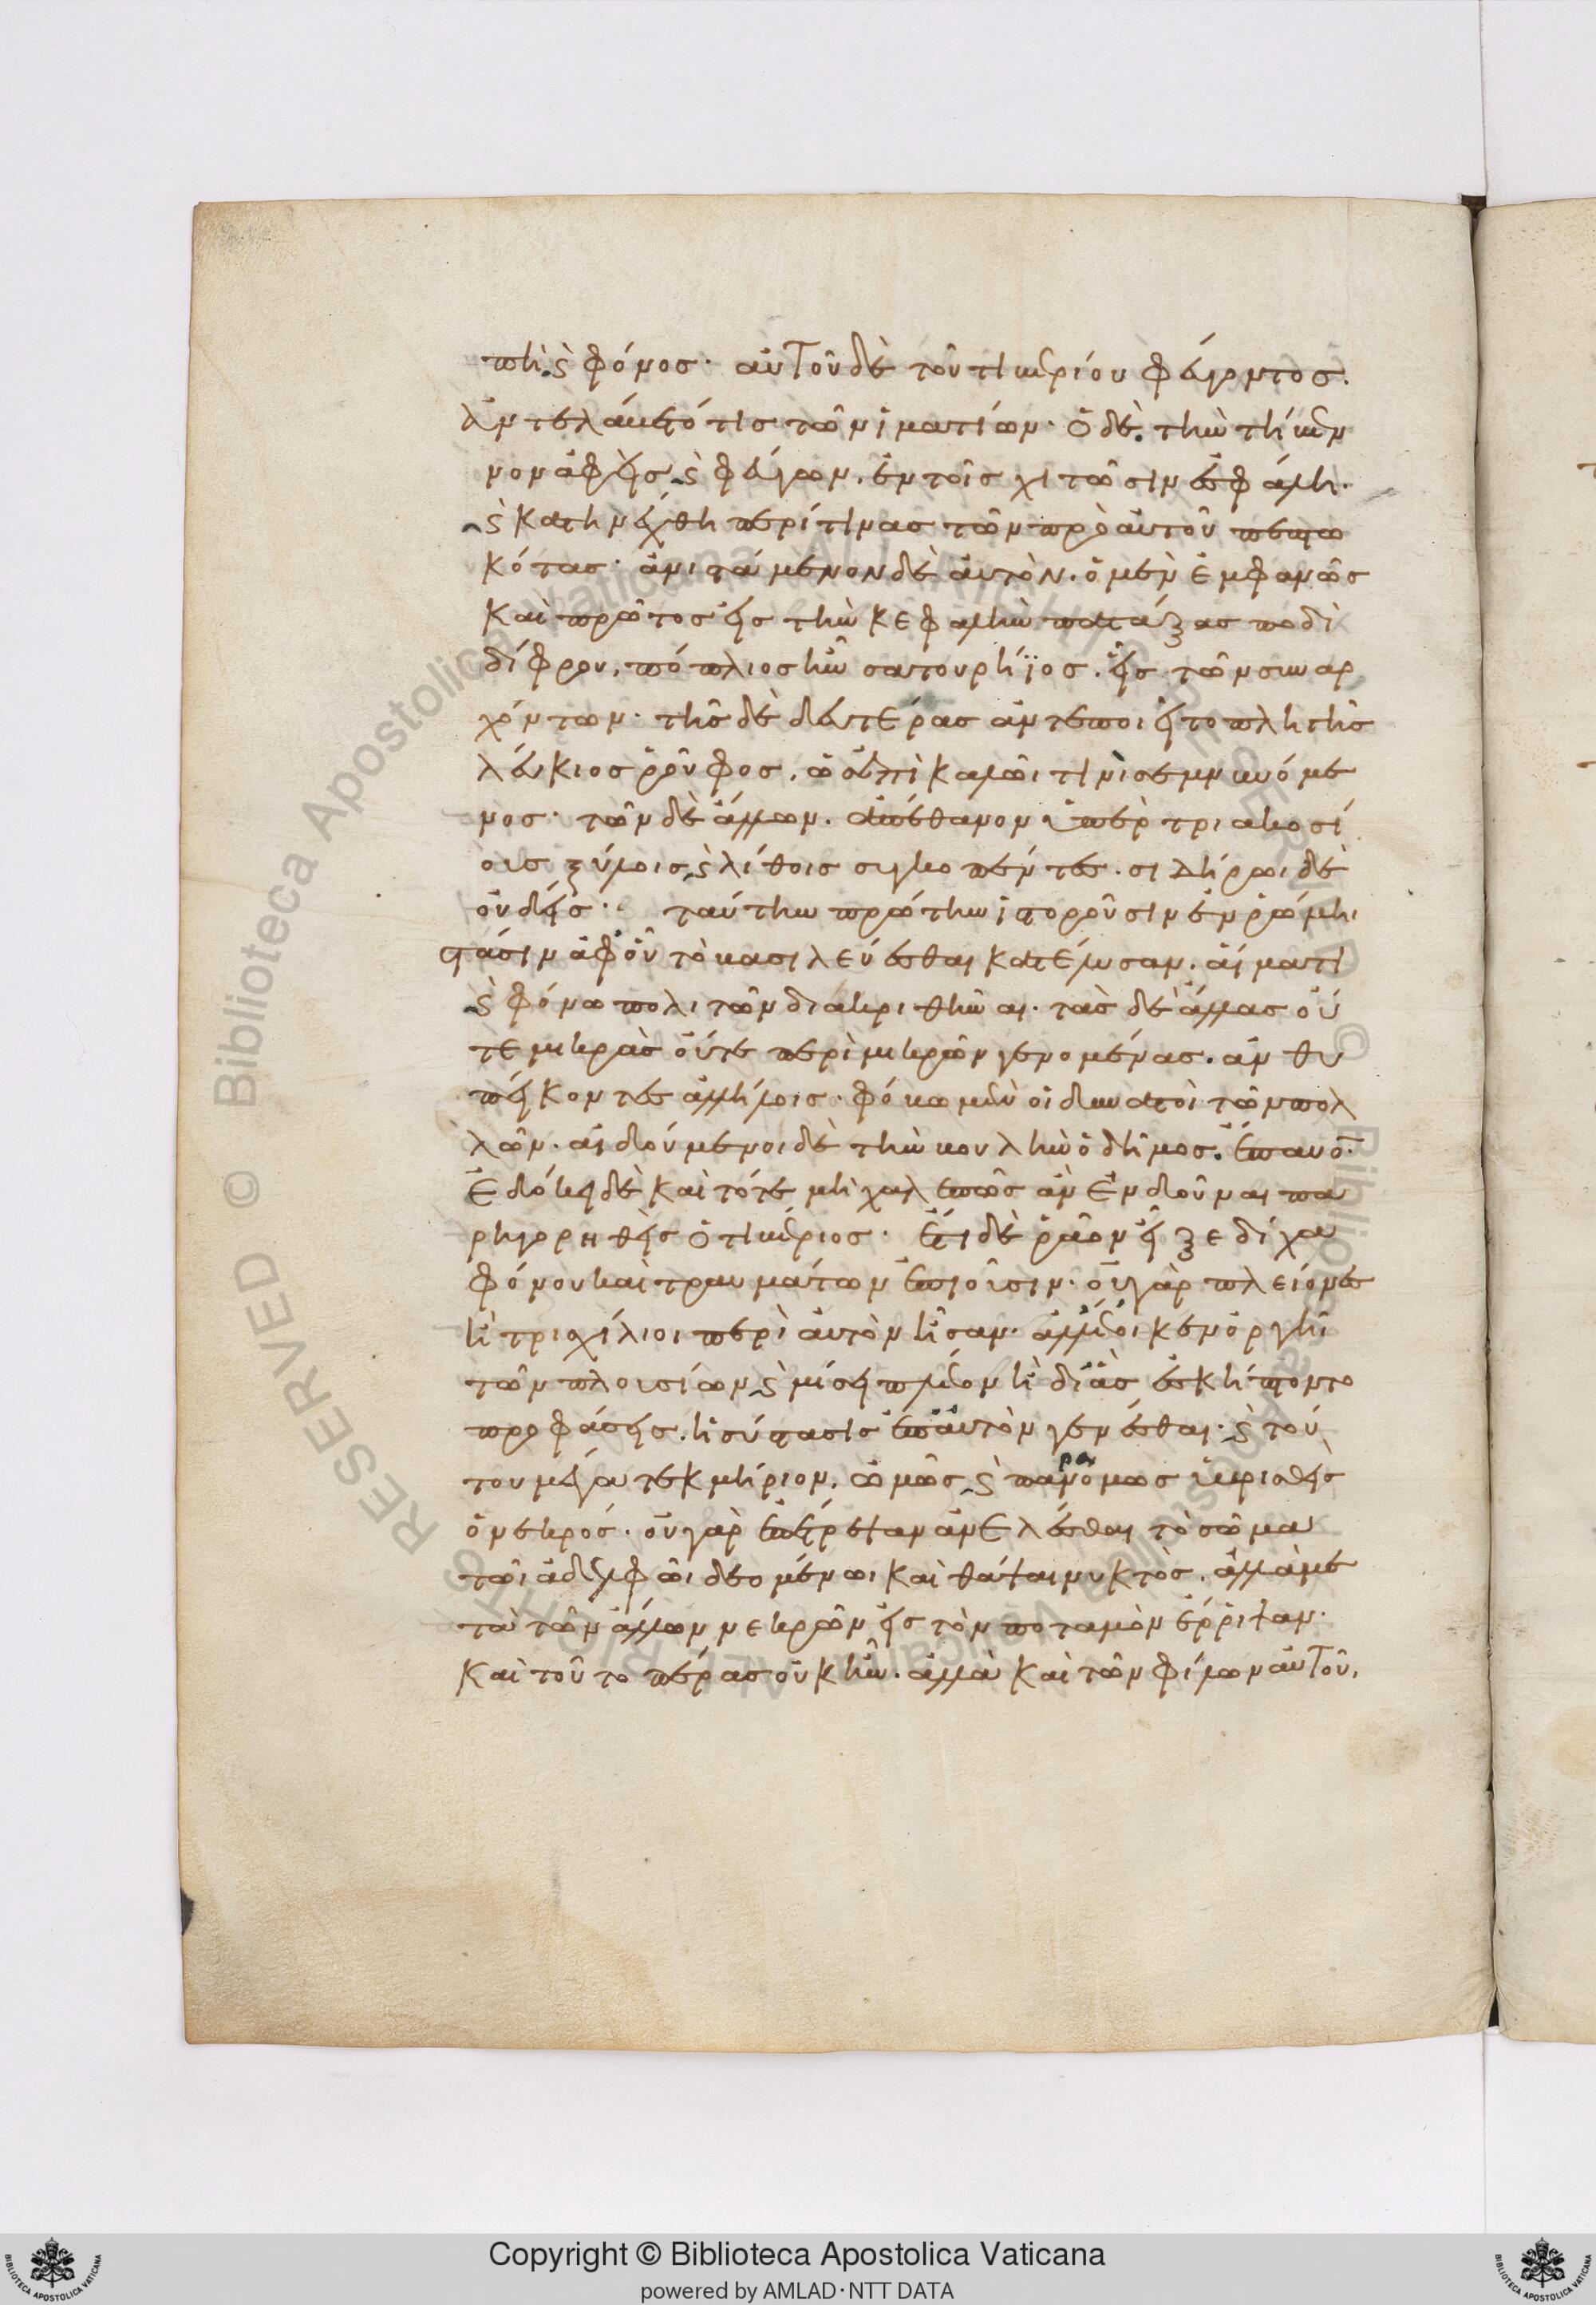 πὴ καὶ φόνος· αὐτοῦ δὲ τοῦ τιβερίου φεύγοντος.
ἀντελάβετό τις τῶν ἱματίων· ὁ δὲ τὴν τήβεν
νον ἀφεὶς καὶ φεύγων, ἐν τοῖς χιτῶσιν ἐσφάλη·
καὶ κατηνέχθη περί τινας τῶν πρὸ αὐτοῦ πεπτω
κότας· ἀνιστάμενον δὲ αὐτὸν. ὁ μὲν ἐμφανῶς
καὶ πρῶτος εἰς τὴν κεφαλὴν πατάξας ποδὶ
δίφρου, πόπλιος ἦν σατουρήϊος. εἷς τῶν συναρ
χόντων· τῆς δὲ δευτέρας ἀντεποιεῖτο πληγῆς
λεύκιος ῥοῦφος, ὡς ἐπὶ καλῶι τινὶ σεμνυνόμε
νος· τῶν δὲ ἄλλων. ἀπέθανον ὑπὲρ τριακοσί
οις ξύλοις καὶ λίθοις συγκοπέντες. σιδήρωι δὲ
οὐδείς· ταύτην πρώτην ἱστοροῦσιν ἐν ῥώμηι
στάσιν ἀφ' οὗ τὸ βασιλεύεσθαι κατέλυσαν. αἵματι
καὶ φόνω πολιτῶν διακριθῆναι. τὰς δὲ ἄλλας οὔ
τε μικρὰς οὔτε περὶ μικρῶν γενομένας. ἀνθυ
πείκοντες ἀλλήλοις· φόβω μὲν οἱ δυνατοὶ τῶν πολ
λῶν. αἰδούμενοι δὲ τὴν βουλὴν ὁ δῆμος. ἔπαυον·
Ἐδόκει δὲ καὶ τότε μὴ χαλεπῶς ἂν ἐνδοῦναι πα
ρηγορηθεὶς ὁ τιβέριος· ἔτι δὲ ῥᾶον εἶξε δίχα
φόνου καὶ τραυμάτων ἐπιοῦσιν· οὐ γὰρ πλείονες
ἢ τρισχίλιοι περὶ αὐτὸν ἦσαν· ἀλλ' ἔοικεν ὀργῆι
τῶν πλουσίων καὶ μίσει πλέον ἢ δι' ἃς ἐσκήπτοντο
προφάσεις. ἡ σύστασις ἐπ' αὐτὸν γενέσθαι· καὶ τού
του μέγα τεκμήριον. ὠμῶς καὶ παρανόμως ὑβρισθεὶς
ὁ νεκρός· οὐ γὰρ ἐπέτρεψαν ἀνελέσθαι τὸ σῶμα
τῶι ἀδελφῶι δεομένωι καὶ θάψαι νυκτὸς. ἀλλὰ με
τὰ τῶν ἄλλων νεκρῶν εἰς τὸν ποταμὸν ἔρριψαν·
καὶ τοῦτο πέρας οὐκ ἦν. ἀλλὰ καὶ τῶν φίλων αὐτοῦ,
RESERVED © Biblioteca Apostolica Vaticana ALL RIGHTS RESERVED © Biblioteca Apostolica Vaticana ALL RIGHTS
Copyright © Biblioteca Apostolica Vaticana
powered by AMLAD·NTT DATA